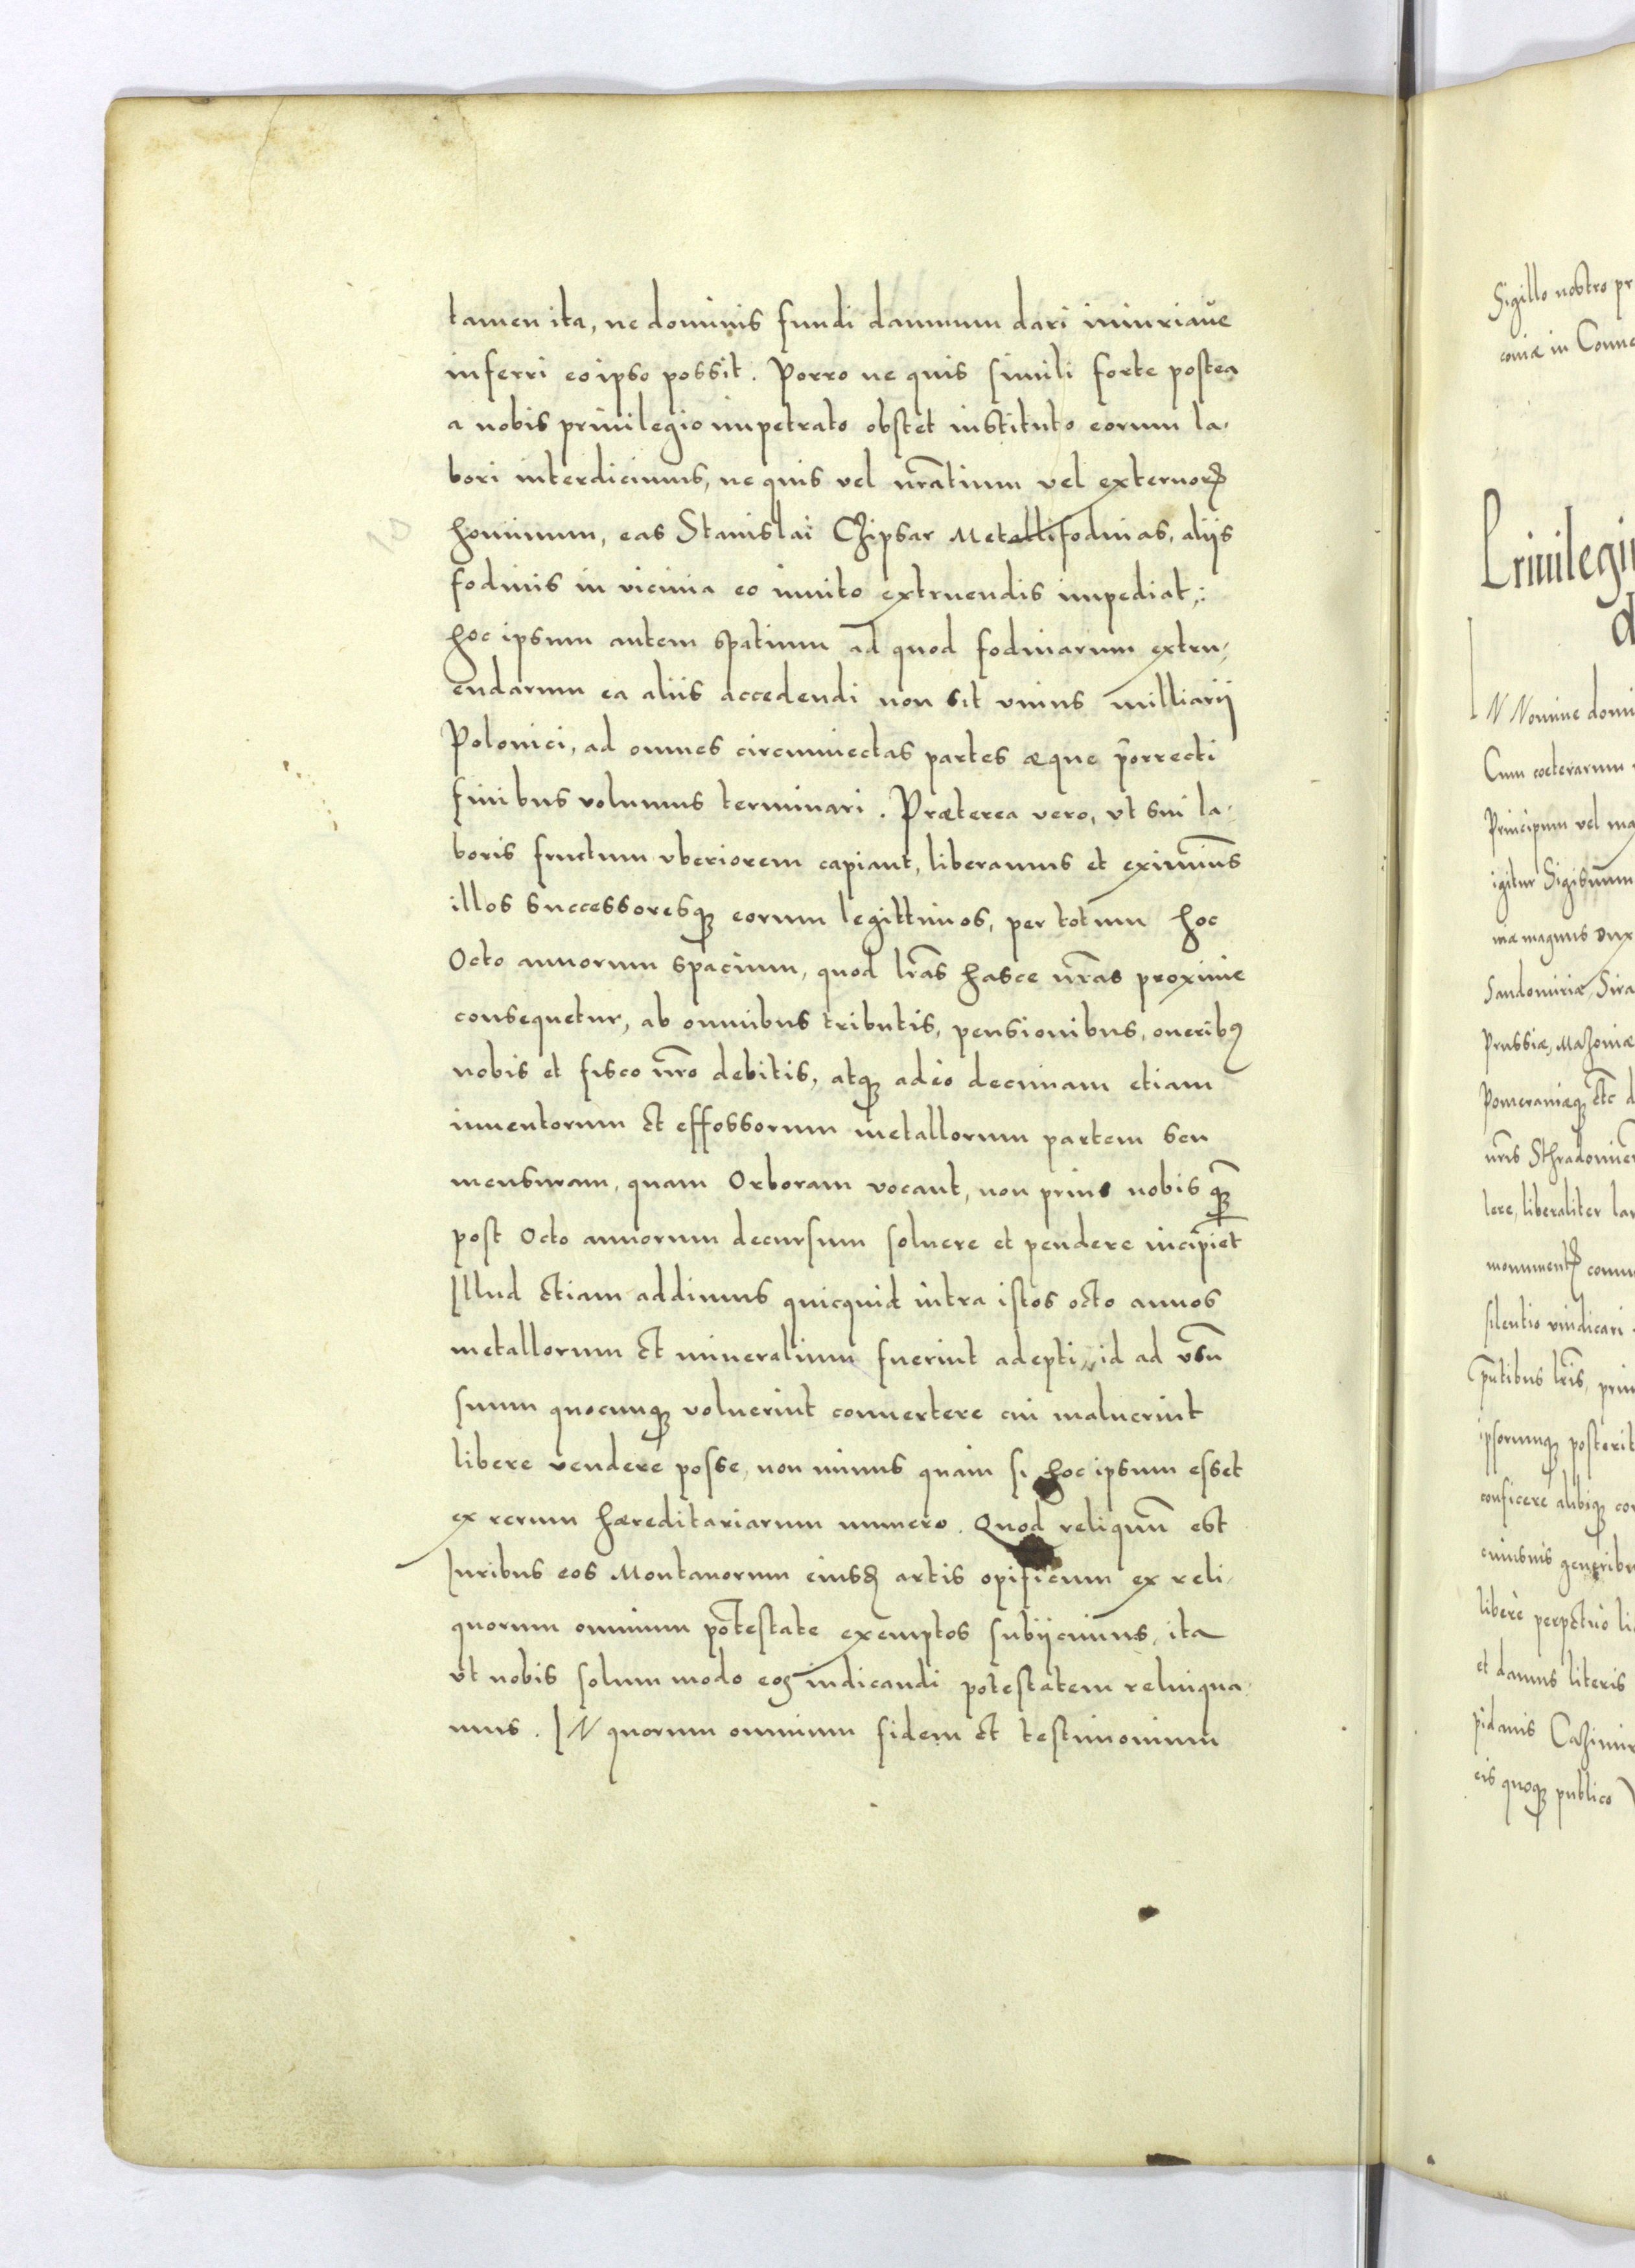 tamen ita, ne dominis fundi damnum dari iniuriaue
inferri eo ipso possit. Porro ne quis simili forte postea
a nobis priuilegio impetrato obstet instituto eorum la-
bori interdicimus, ne quis vel nr̃atium vel externoꝝ
hominum, eas Stanislai Chipsar Metallifodinas, aliis
fodinis in vicinia eo inuito extruendis impediat,:
hoc ipsum autem spatium ad quod fodinarum extru-
endarum ea aliis accedendi non sit vnius milliarij
Polonici, ad omnes circumiectas partes æque porrecti
finibus volumus terminari. Præterea vero, vt sui la-
boris fructum vberiorem capiant, liberamus et eximimus
illos successoresqꝫ eorum legittimos, per totum hoc
Octo annorum spacium, quod lr̃as hasce nr̃as proxime
consequetur, ab omnibus tributis, pensionibus, oneribꝰ
nobis et fisco nr̃o debitis, atqꝫ adeo decimam etiam
inuentorum et effossorum metallorum partem seu
mensuram, quam Orboram vocant, non prius nobis qꝫ̃
post Octo annorum decursum soluere et pendere incipiẽt
Illud etiam addimus quicquid intra istos octo annos
metallorum et mineralium fuerint adepti, id ad vsũ
suum quocunqꝫ voluerint conuertere cui maluerint
libere vendere posse, non minus quam si hoc ipsum esset
ex rerum hæreditariarum numero. Quod reliquũ est
Iuribus eos Montanorum eiusꝺ artis opificum ex reli-
quorum omnium potestate exemptos subijcimus, ita
vt nobis solum modo eos iudicandi potestatem relinqua-
mus. IN quorum omnium fidem et testimonium
Sigillo nostro pr
coniæ in Conue
Priuilegiu
d
IN Nomine domi
Cum cæterarum
Principum vel ma
igitur Sigismun
niæ magnus Dux
Sandomiriæ, Sira
Prussiæ, Mazoniæ
Pomeraniæqꝫ etc̃ d
nr̃is Sthradomien
lere, liberaliter lar
silentio vindicari
pñtibus lr̃is, priu
ipsorumqꝫ posterit
conficere alibiqꝫ co
cuiusuis generibu
libere perpetuo li
et damus literis
pidanis Cazimir
eis quoqꝫ publico